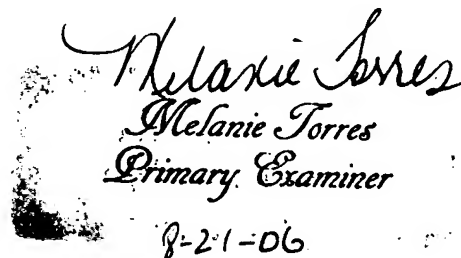 Melanie Torres
Melanie Torres
Primary Examiner
8-21-06